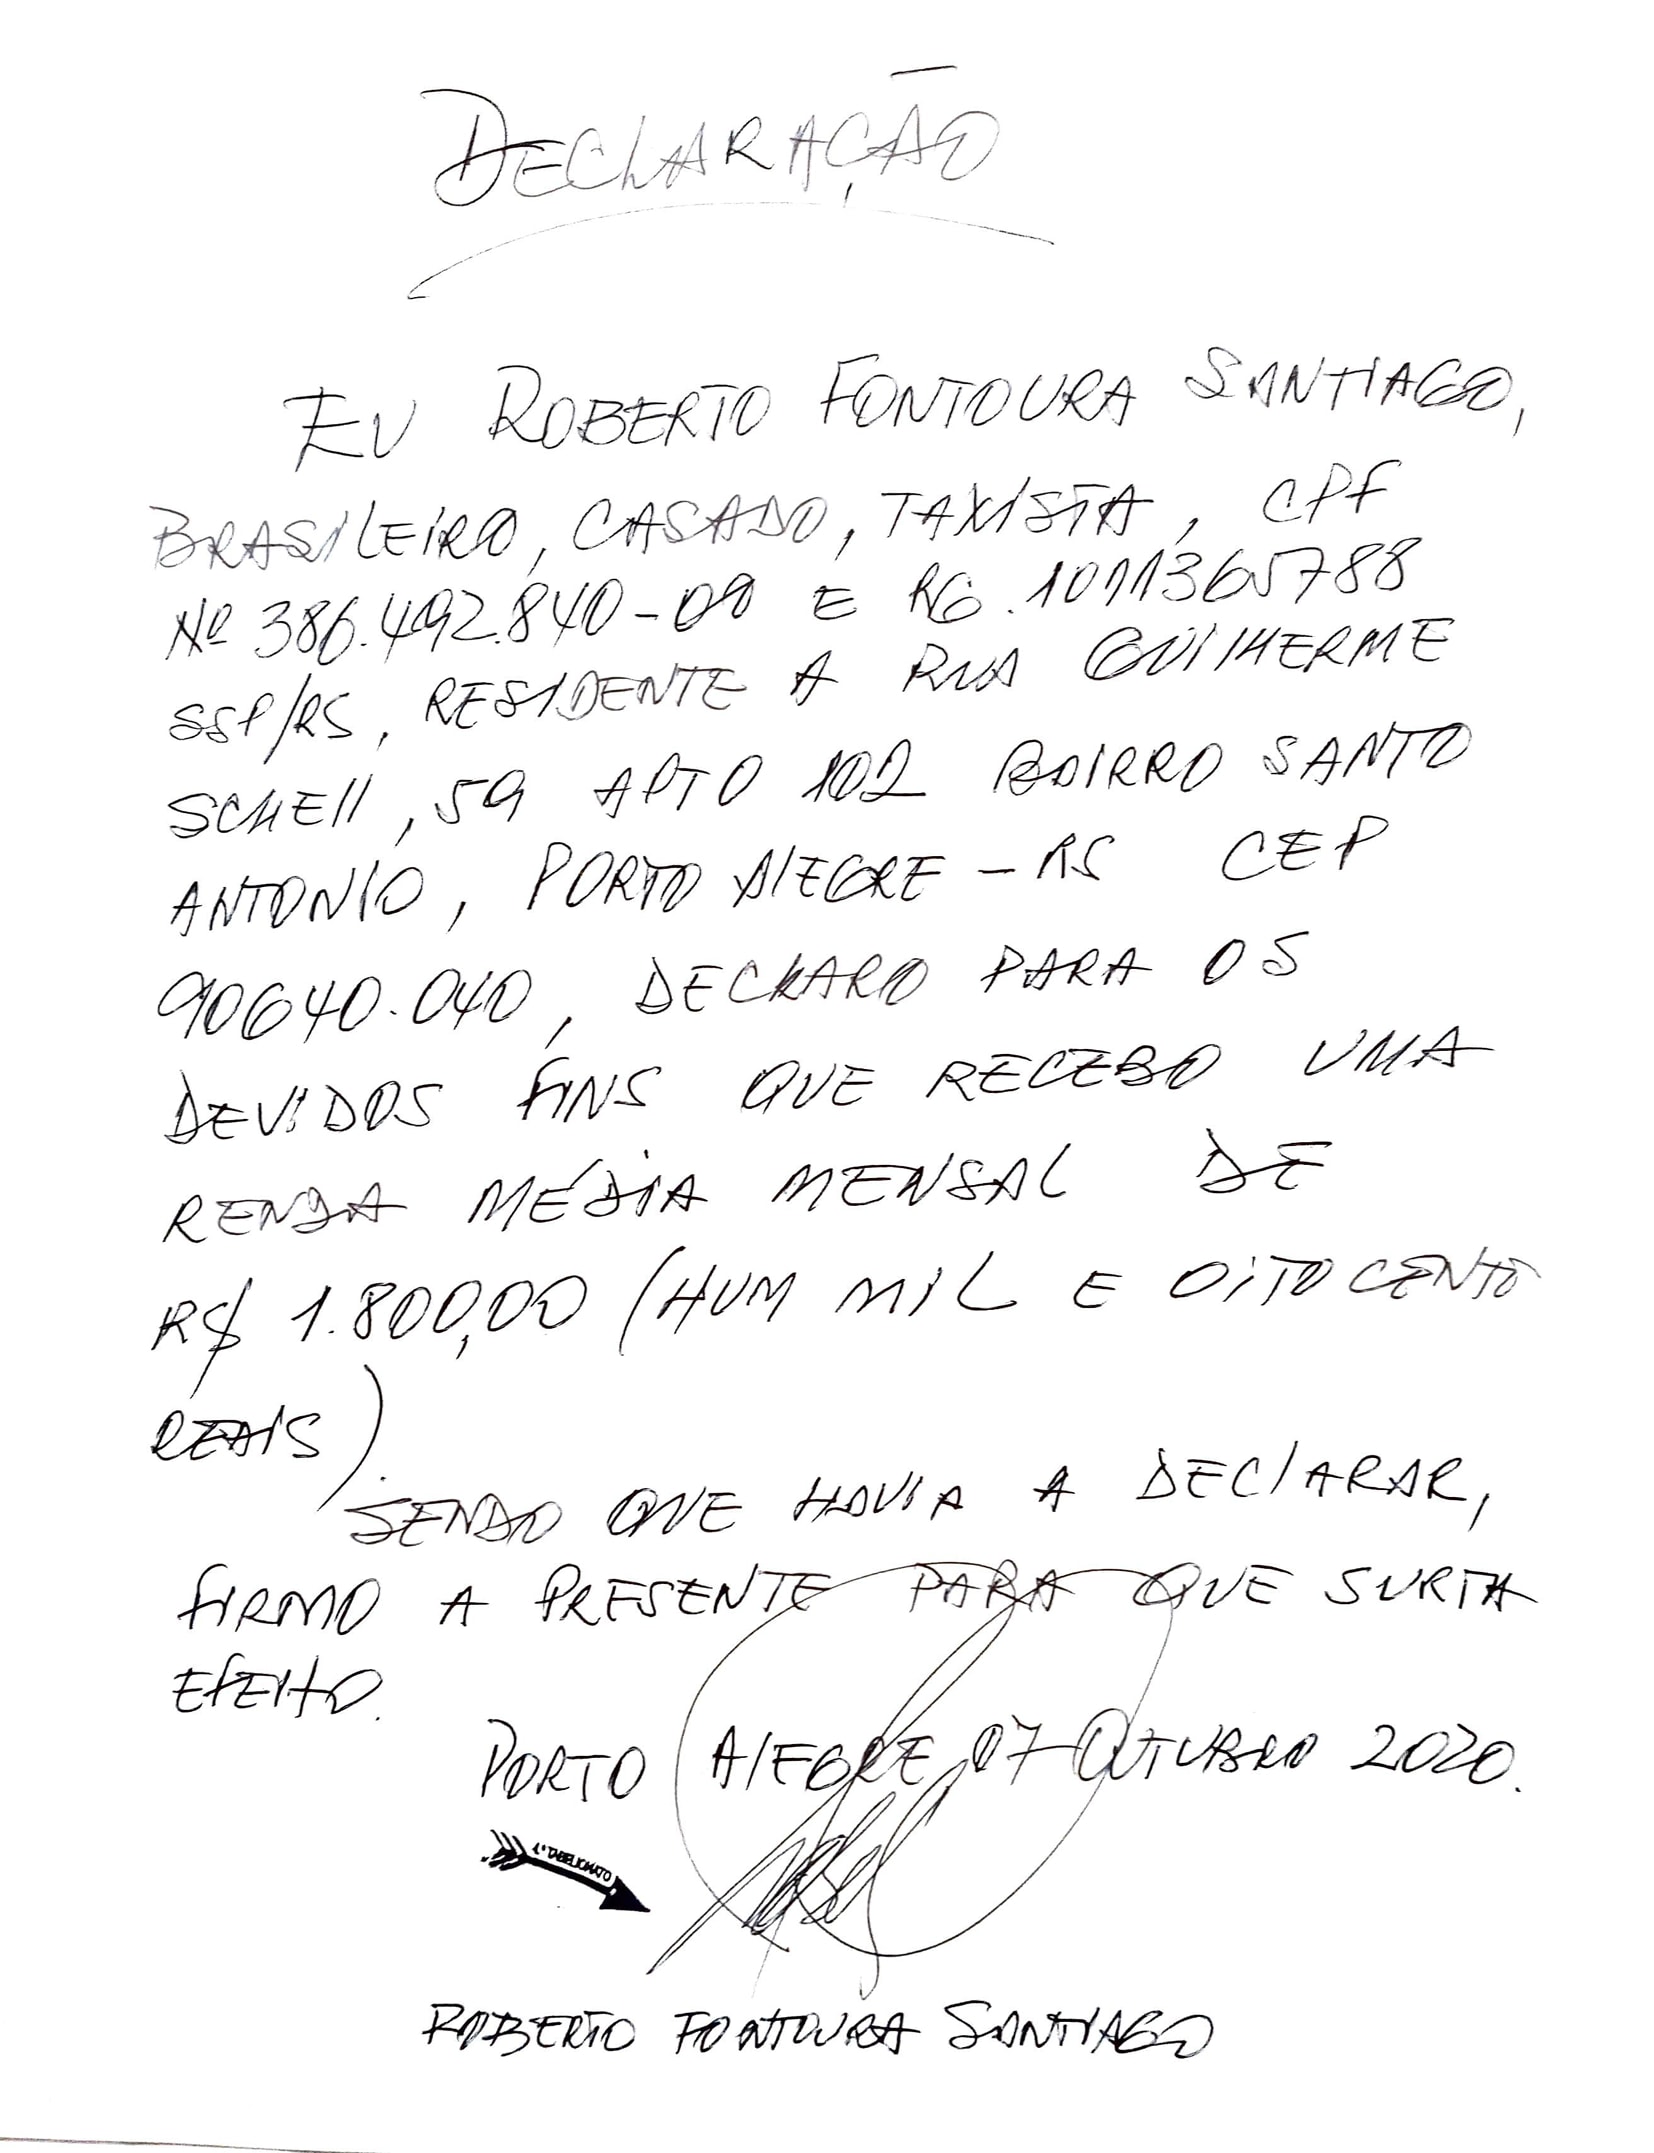 DECLARAÇÃO
EU ROBERTO FONTOURA SANTIAGO,
BRASILEIRO, CASADO, TAXISTA, CPF
Nº 386.492.840-00 E RG.1011365788
SSP/RS, RESIDENTE A RUA GUILHERME
SCHEll, 59 APTO 102 BAIRRO SANTO
ANTONIO, PORTO AlEGRE - RS CEP
90640.040, DECLARO PARA OS
DEVIDOS FINS QUE RECEBO UMA
RENDA MÉDIA MENSAL DE
R$ 1.800,00 (HUM MIL E OITOCENTO
REAIS).
SENDO QUE HAVIA A DEClARAR,
FIRMO A PRESENTE PARA QUE SURTA
EFEITO.
PORTO AlEGRE, 07 OUTUBRO 2020.
1º TABELIONATO
ROBERTO FONTOURA SANTIAGO